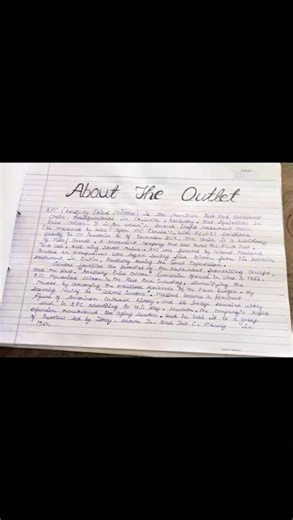 About The Outlet
KFC (Kentucky Fried Chicken) is an American fast food restaurant
chain headquartered in Louisville, Kentucky, that specializes in
fried chicken. It is the world's second largest restaurant chain
(as measured by sales) after McDonald's, with
globally in countries as of December The chain is a subsidiary
of Yum! Brands, a restaurant company that also owns the Pizza Hut,
Taco Bell, and Wing Street chains. KFC was founded by Colonel Harland
Sanders, an entrepreneur who began selling fried chicken from his roadside
restaurant in Corbin, Kentucky during the Great Depression.
Sanders identified the potential of the restaurant franchising concept,
and the first "Kentucky Fried Chicken" franchise opened in Utah in 1952.
KFC popularized chicken in the fast food industry, diversifying the
market by challenging the established dominance of the hamburger. By
branding himself as "Colonel Sanders", Harland became a prominent
figure of American cultural history, and his image remains widely
used in KFC advertising to this day. However, the company's rapid
expansion overwhelmed the aging Sanders, and he sold it to a group
of investors led by John Y. Brown Jr. and Jack C. Massey in
1964.